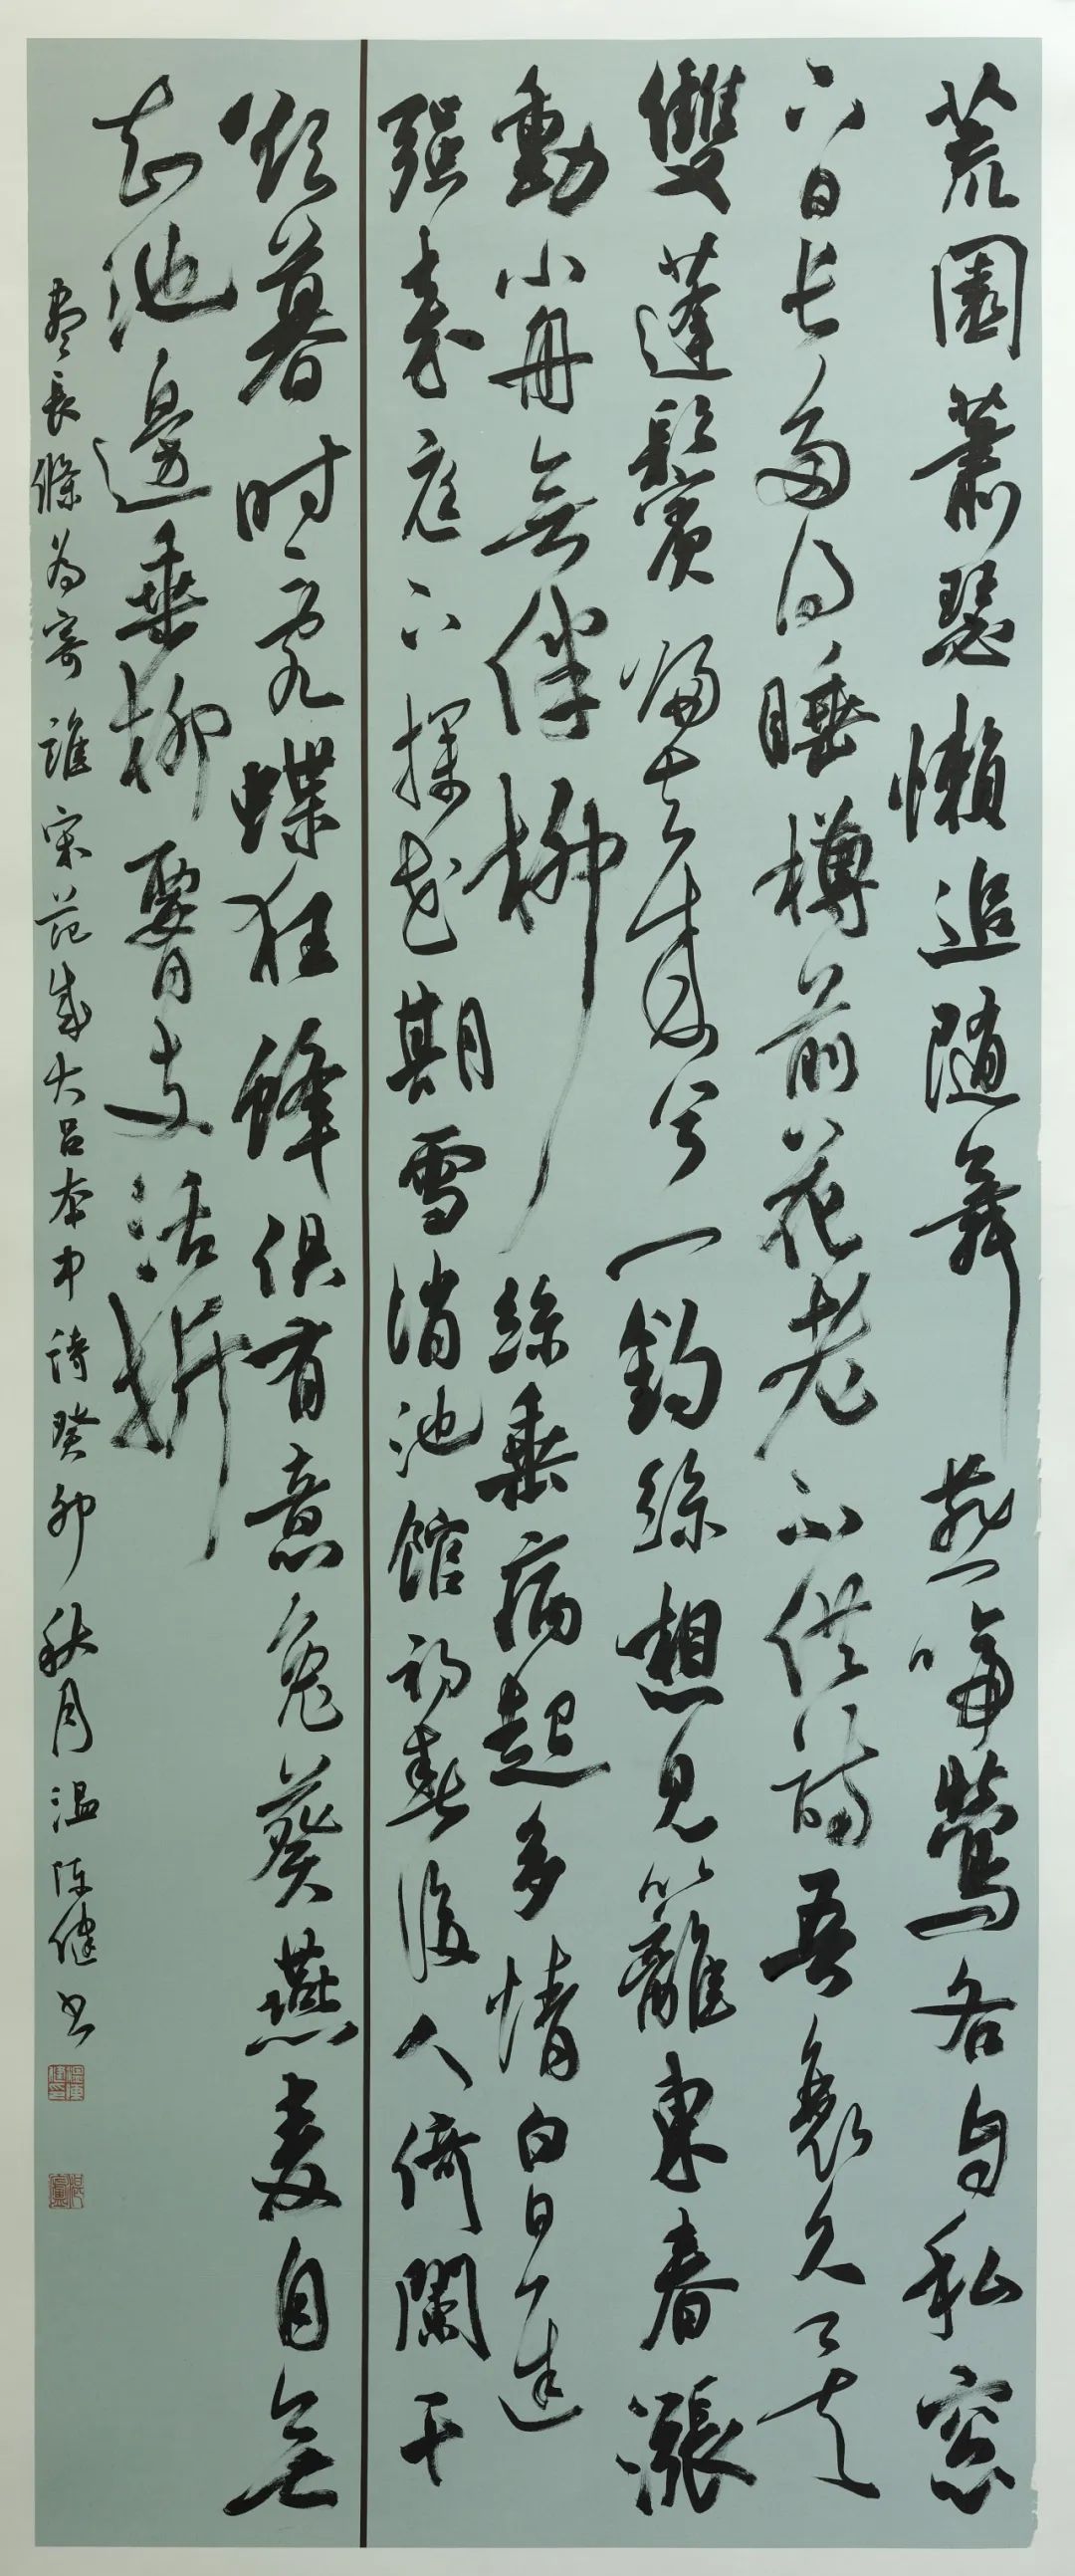 荒園蕭瑟懶追隨舞燕啼鶯各自私窓
下日長多得睡樽前花老不供詩吾衰久矣
雙蓬鬢歸去來兮一釣絲想見籬東春漲
動小舟無伴柳絲垂病起多情白日遲
强來庭下探花期雪消池館初春後人倚闌干
欲暮時亂蝶狂蜂俱有意兔葵燕麥自無
知池邊垂柳腰支活折
盡長條為寄誰宋范成大吕本中詩癸卯秋月温陈健书